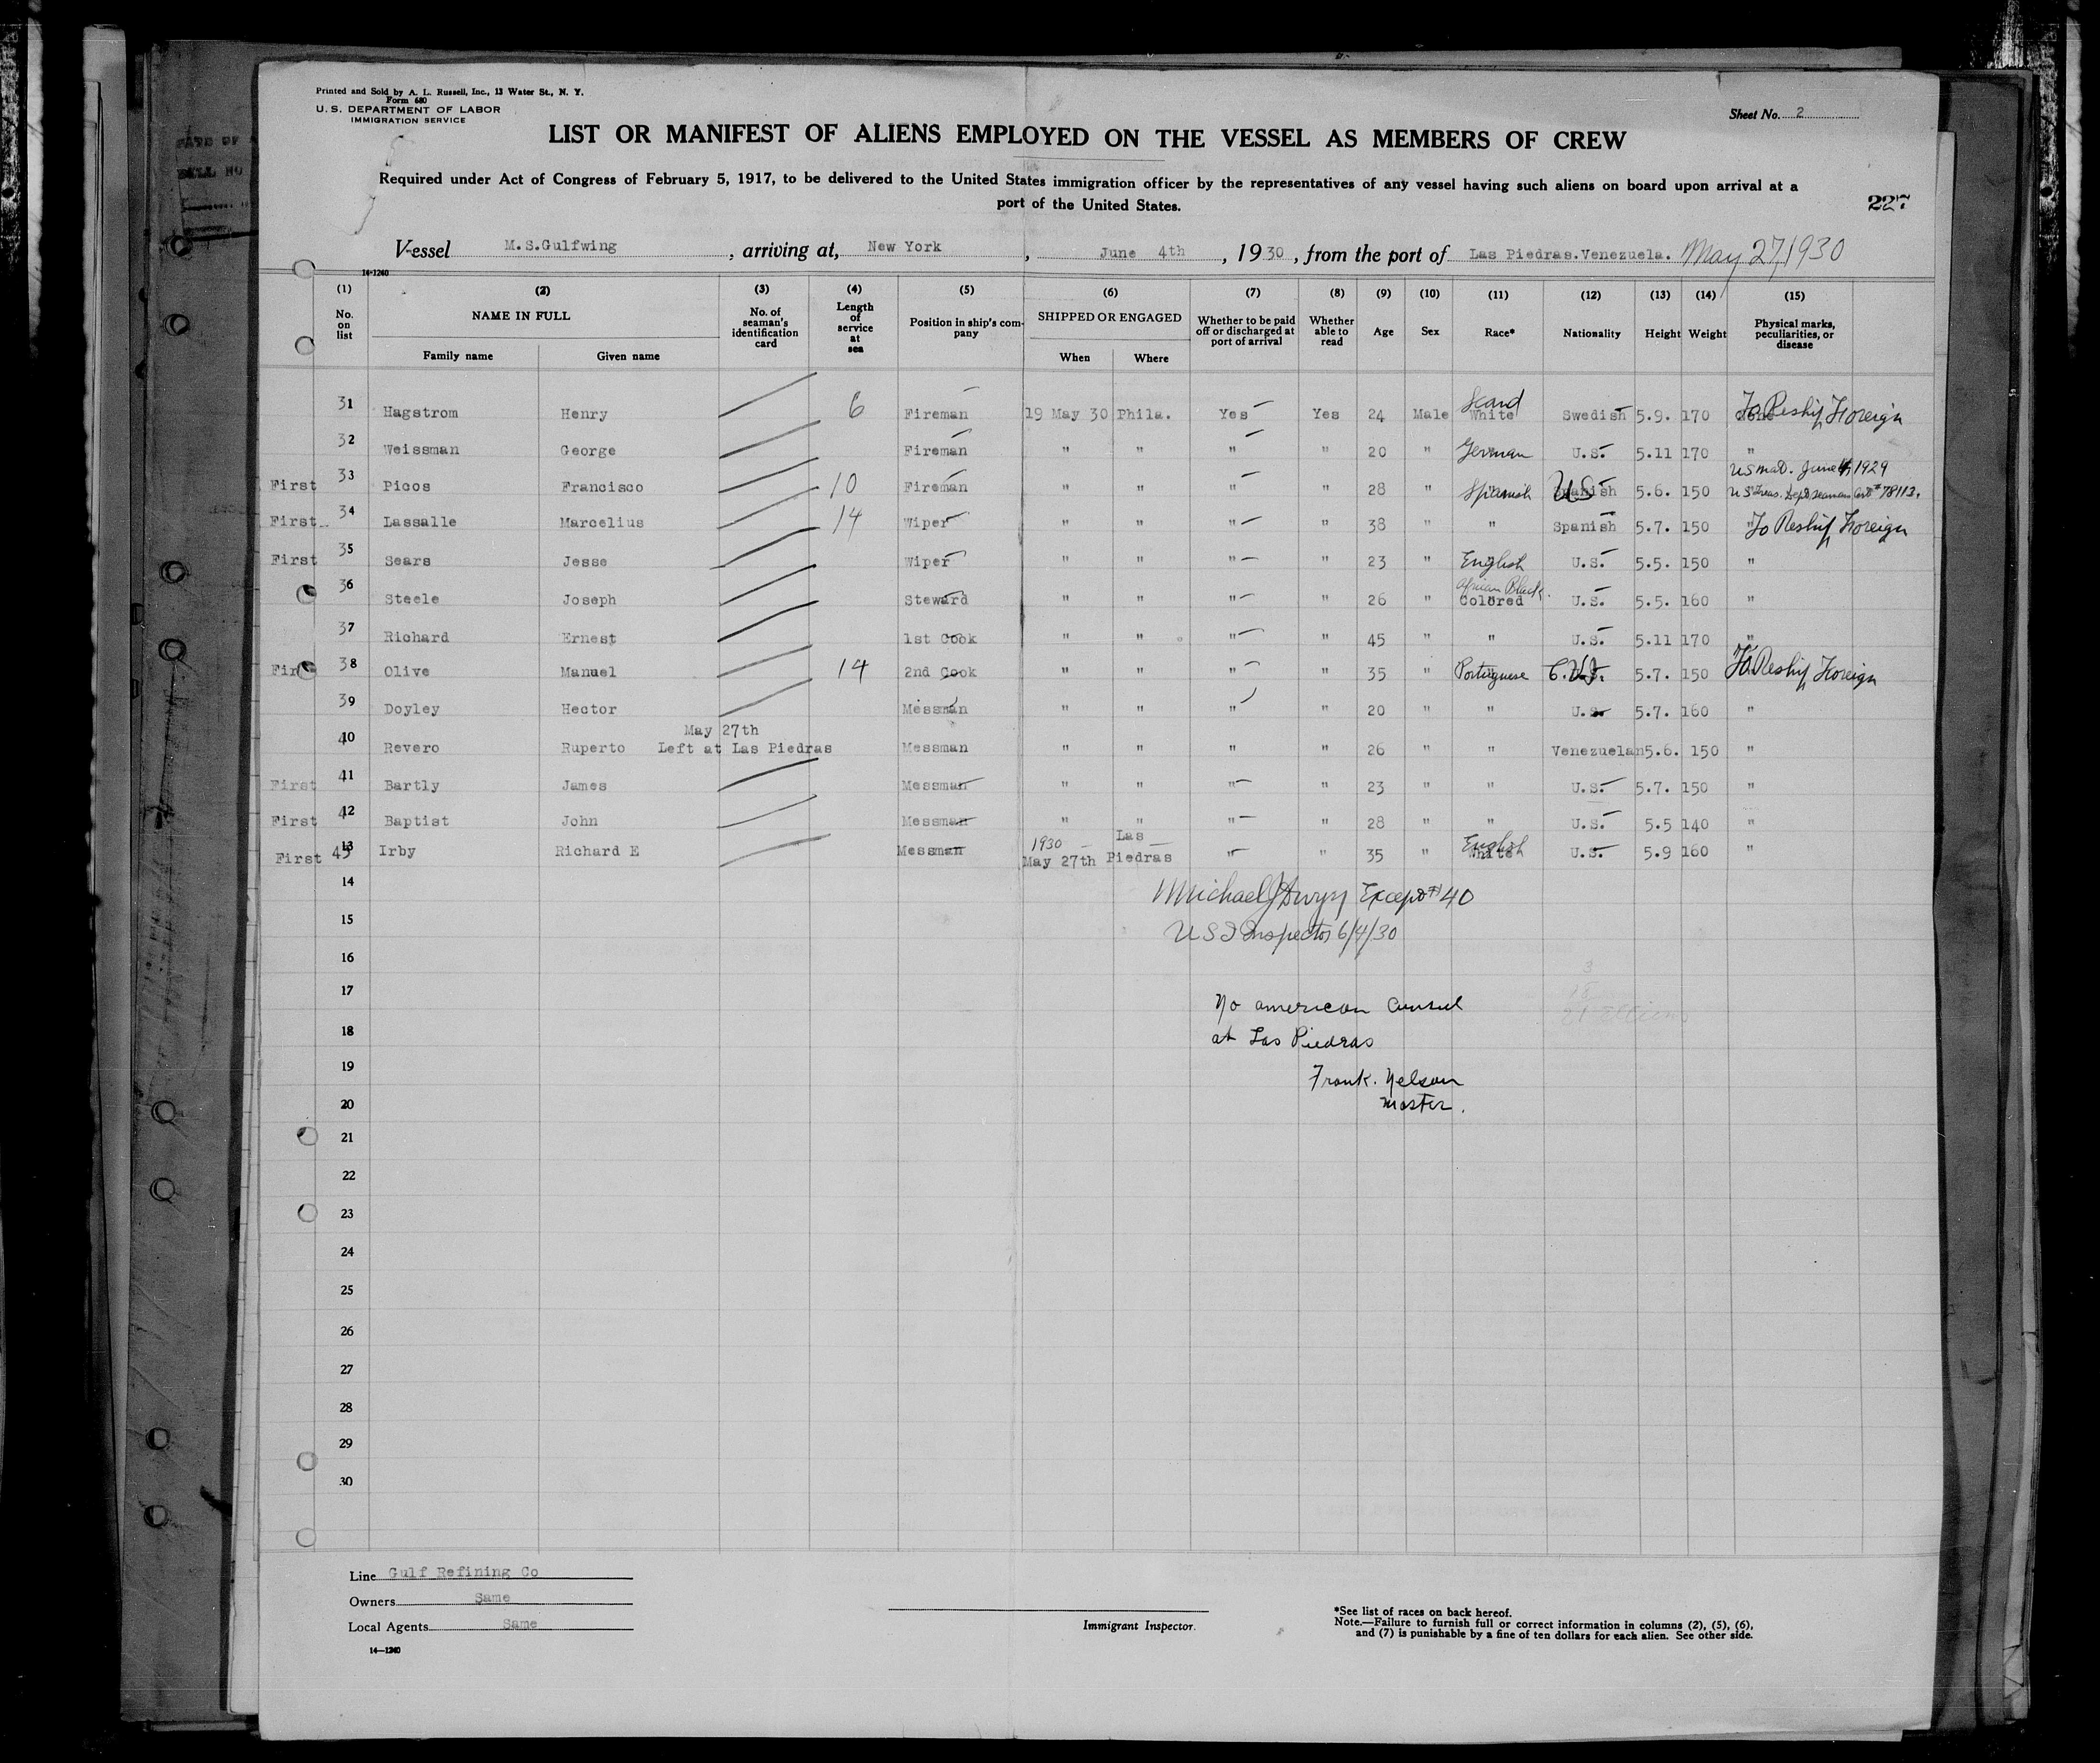 Printed and Sold by A. L. Russell, Inc., 13 Water St., N. Y.
Form 680
U. S. DEPARTMENT OF LABOR
IMMIGRATION SERVICE
Sheet No. 2
LIST OR MANIFEST OF ALIENS EMPLOYED ON THE VESSEL AS MEMBERS OF CREW
Required under Act of Congress of February 5, 1917, to be delivered to the United States immigration officer by the representatives of any vessel having such aliens on board upon arrival at a
port of the United States.
227
Vessel M.S.Gulfwing, arriving at, New York, June 4th, 1930, from the port of Las Piedras.Venezuela. May 27, 1930
14-1240
(1) (2) (3) (4) (5) (6) (7) (8) (9) (10) (11) (12) (13) (14) (15)
No. on list NAME IN FULL Family name Given name No. of seaman's identification card Length of service at sea Position in ship's company SHIPPED OR ENGAGED When Where Whether to be paid off or discharged at port of arrival Whether able to read Age Sex Race* Nationality Height Weight Physical marks, peculiarities, or disease
31 Hagstrom Henry 6 Fireman 19 May 30 Phila. Yes Yes 24 Male White Scand Swedish 5.9. 170 To Reship Foreign
32 Weissman George Fireman " " " " 20 " German U.S. 5.11 170 "
First 33 Picos Francisco 10 Fireman " " " " 28 " Spanish US 5.6. 150 US nat. June 1929
US Treas. Dept. Seaman Cert # 78113.
First 34 Lassalle Marcelius 14 Wiper " " " " 38 " " Spanish 5.7. 150 " To Reship Foreign
First 35 Sears Jesse Wiper " " " " 23 " English U.S. 5.5. 150 "
36 Steele Joseph Steward " " " " 26 " African Black. Colored U.S. 5.5. 160 "
37 Richard Ernest 1st Cook " " " " 45 " " U.S. 5.11 170 "
First 38 Olive Manuel 14 2nd Cook " " " " 35 " Portuguese 5.7. 150 To Reship Foreign
39 Doyley Hector Messman " " " " 20 " " U.S. 5.7. 160 "
May 27th
40 Revero Ruperto Left at Las Piedras Messman " " " " 26 " " Venezuelan 5.6. 150 "
First 41 Bartly James Messman " " " " 23 " " U.S. 5.7. 150 "
First 42 Baptist John Messman " " " " 28 " " U.S. 5.5 140 "
First 43 Irby Richard E Messman 1930 May 27th Las Piedras " " 35 " White English U.S. 5.9 160 "
14 Michael J Dwyer Except # 40
15 U S I Inspector 6/4/30
16
17 No american Consul
18 at Las Piedras
19 Frank. Nelson
20 master.
21
22
23
24
25
26
27
28
29
30
Line Gulf Refining Co
Owners Same
Local Agents Same
14—1240
Immigrant Inspector.
*See list of races on back hereof.
Note.—Failure to furnish full or correct information in columns (2), (5), (6),
and (7) is punishable by a fine of ten dollars for each alien. See other side.